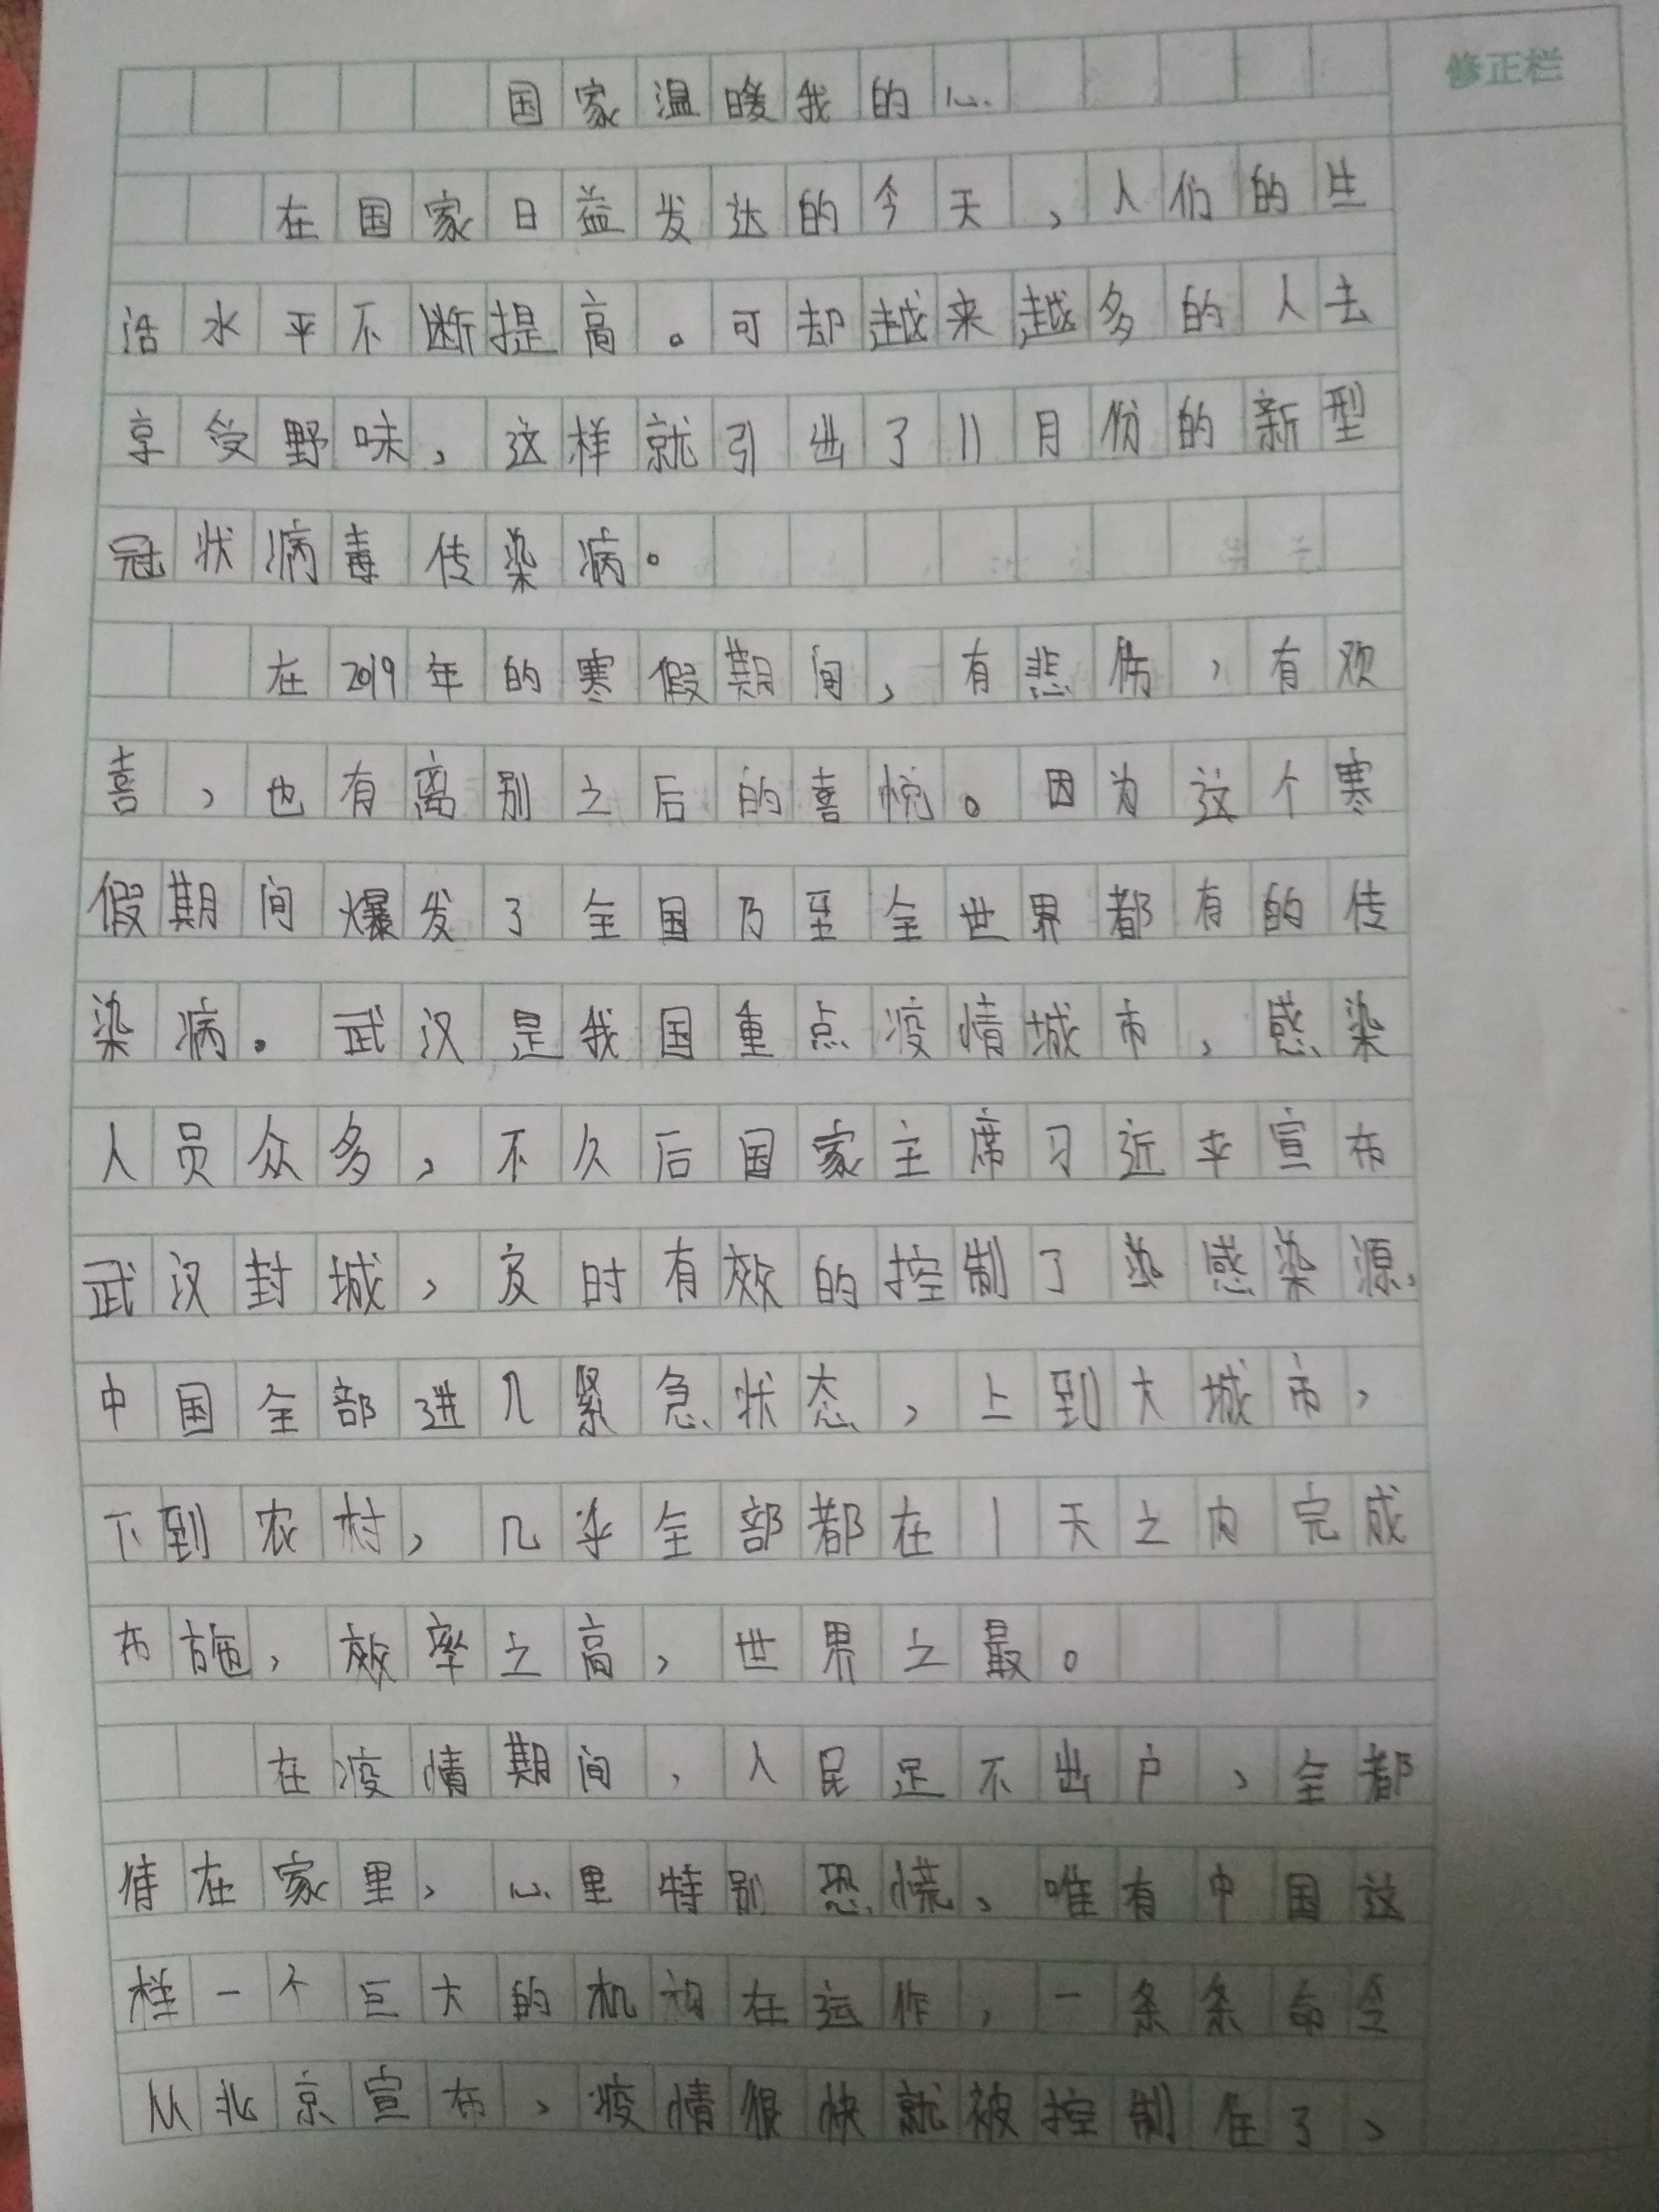 修正栏
国家温暖我的心
在国家日益发达的今天，人们的生
活水平不断提高。可却越来越多的人去
享受野味，这样就引出了11月份的新型
冠状病毒传染病。
在2019年的寒假期间，有悲伤，有欢
喜，也有离别之后的喜悦。因为这个寒
假期间爆发了全国乃至全世界都有的传
染病。武汉是我国重点疫情城市，感染
人员众多，不久后国家主席习近平宣布
武汉封城，及时有效的控制了感染源，
中国全部进入紧急状态，上到大城市，
下到农村，几乎全部都在1天之内完成
布施，效率之高，世界之最。
在疫情期间，人民足不出户，全都
待在家里，心里特别恐慌，唯有中国这
样一个巨大的机构在运作，一条条命令
从北京宣布，疫情很快就被控制住了，